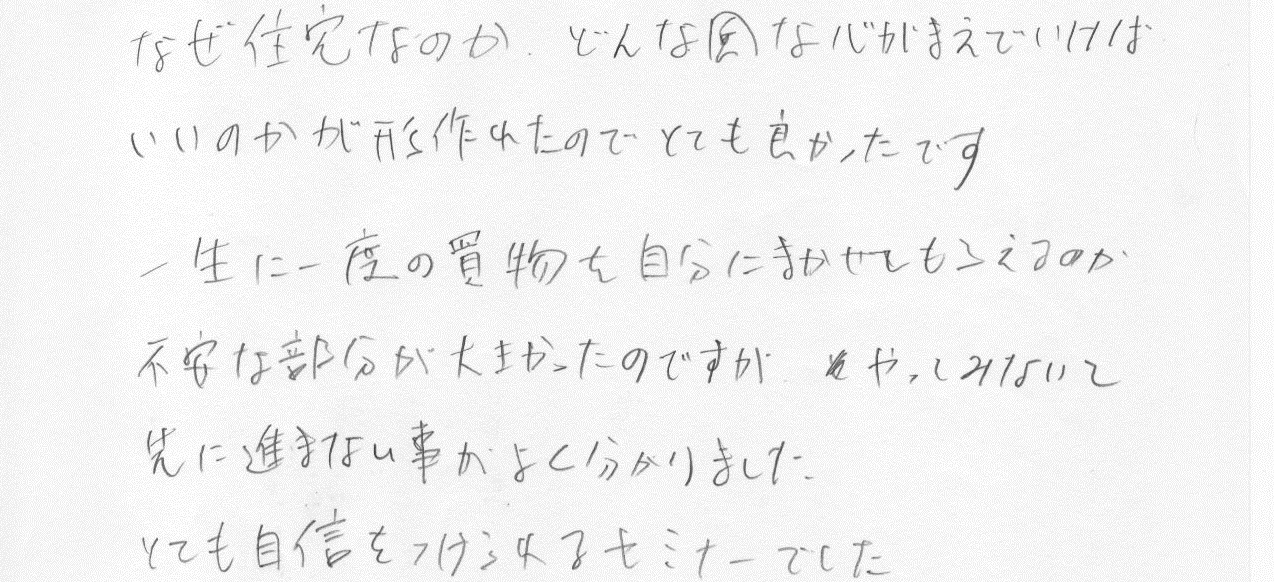 なぜ住宅なのか、どんな風な心がまえでいけば
いいのかが形作れたのでとても良かったです
一生に一度の買物を自分にまかせてもらえるのか
不安な部分が大きかったのですが、やってみないと
先に進まない事がよく分かりました。
とても自信をつけられるセミナーでした